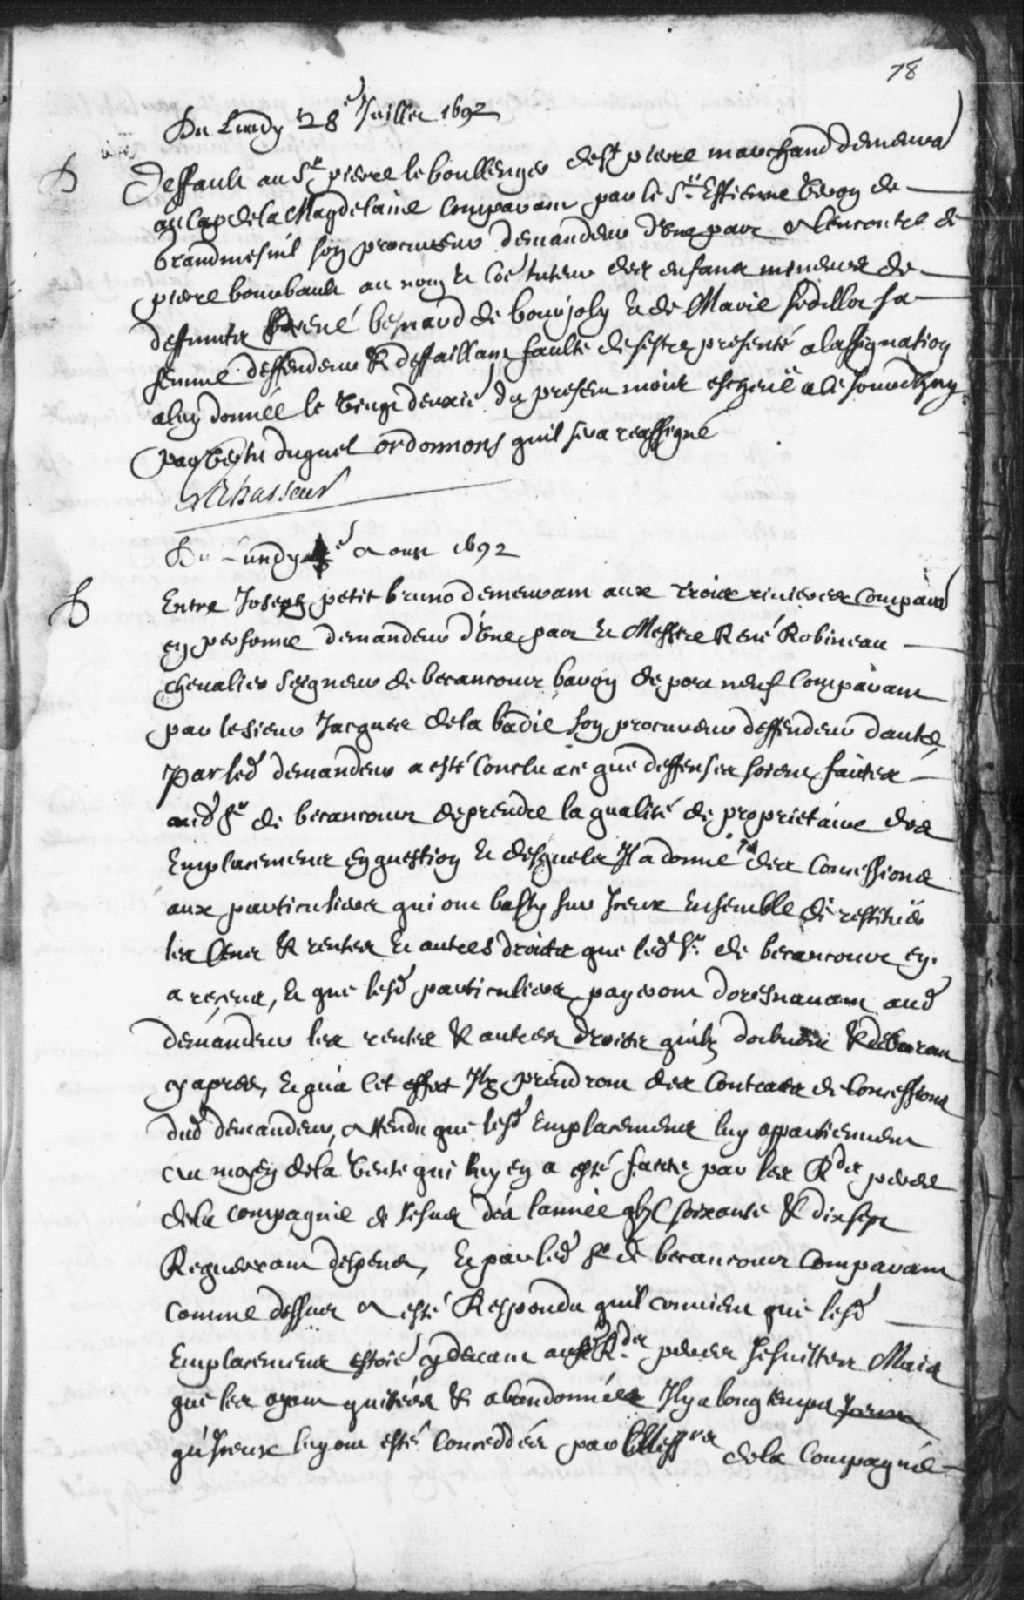 78
Du Lundy 28e Juillet 1692
D
Deffault au Sr pierre le boullenger de St pierre marchand demeurat
au Cap de la Magdelaine Comparant par le Sr Estienne Veron de
Grandmesnil son procureur demandeur d'Une part A lencontre de
pierre bourbault au nom Et Coe tuteur des enfans mineurs de
deffuncts René besnard de bourjoly Et de Marie sedillot sa
femme deffendeur & deffaillant faulte de s'estre presenté a lassignation
a luy donnée le Vingt deuxie du present mois escheüe a ce jourdhuy
par duguet ordonnons quil sera reassigné
Du Lundy 4e Aoust 1692
D
Entre Joseph petit bruno demeurant aux trois rivieres Comparant
en personne demandeur d'Une part Et Messire René Robineau
chevalier Seigneur de becancour baron de port neuf Comparant
par le sieur Jacques de la badie son procureur deffendeur dautre
Par led demandeur a esté Conclu a ce que deffenses soient faites
aud Sr de becancour de prendre la qualité de proprietaire des
Emplacements en question Et desquels Il a donné des Concessions
aux particuliers qui ont basty sur Iceux Ensemble de restituer
les Cens & rentes Et autres droits que led Sr de becancour en
a receus, Et que lesd particuliers payeront doresnavant aud
demandeur les rentes & autres droits quilz doibvent & debvront
cy apres, Et qu'a cet effet Ilz prendront des Contrats de Concessions
dud demandeur, Attendu que lesd Emplacements luy appartiennent
Au moyen de la Vente que luy en a esté faitte par les Rds peres
de la compagnie de Jesus dès lannée gbic soixante & dix sept
Requerant despens, Et par led Sr de becancour Comparant
comme dessus A esté Respondu quil convient que lesd
Emplacements estoie cydevant aux Rds peres Jesuittes Mais
que les ayant quittées & abandonnées Il y a long temps
qu'Iceux luy ont esté Conceddés par de la Compagnie